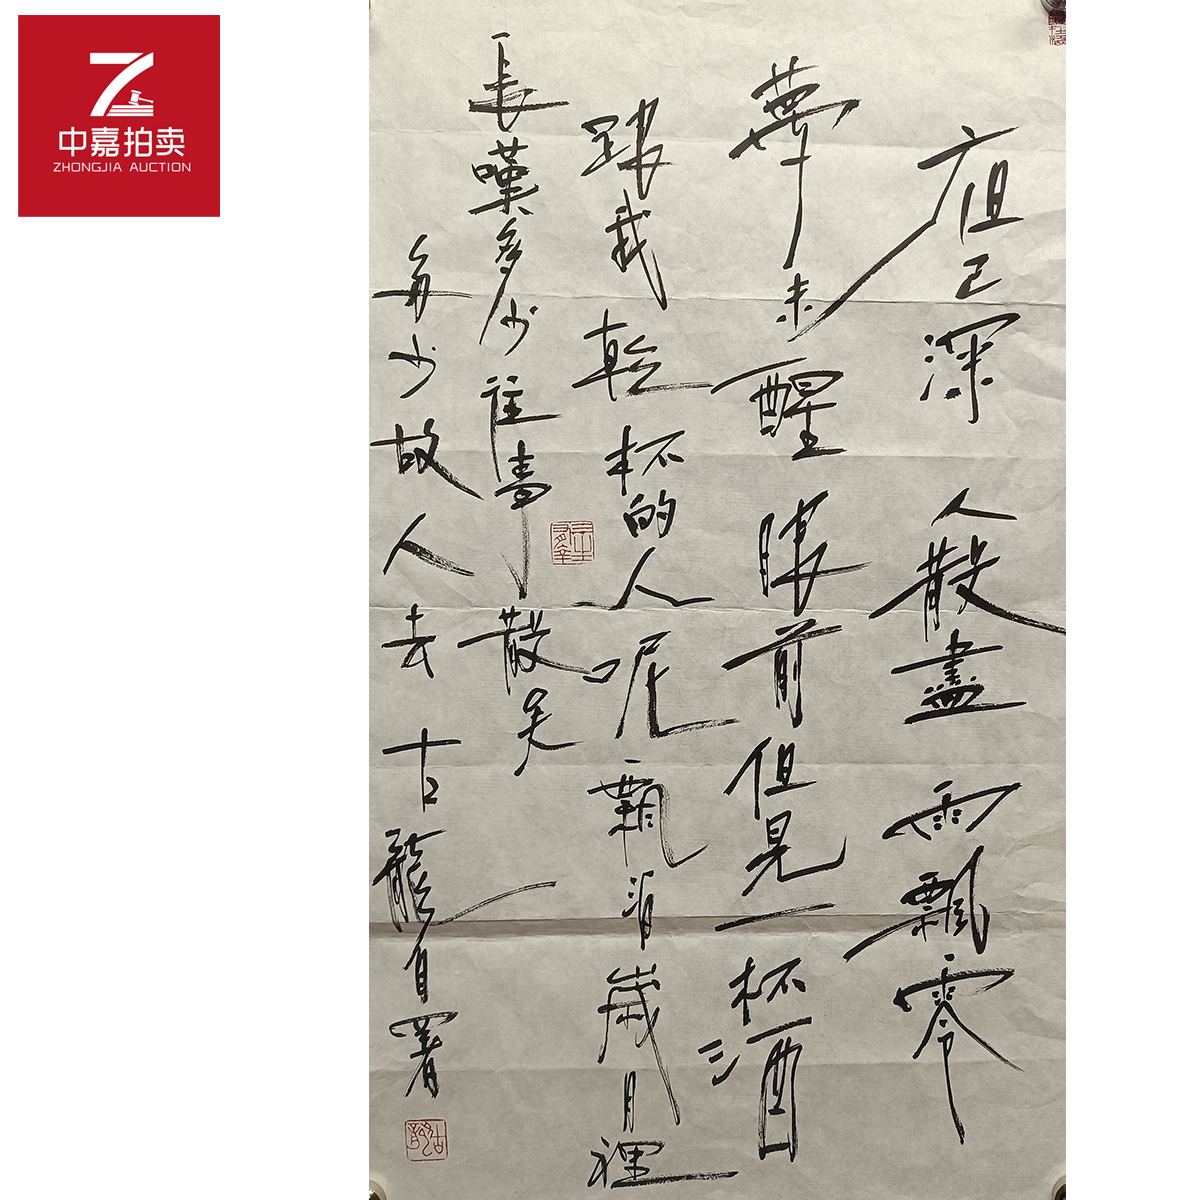 中嘉拍卖
ZHONGJIA AUCTION
已深人散盡雨飄零
夢未醒眼前但見一杯酒
跟我乾杯的人呢飄消歲月裡
長嘆多少往事散矣
多少故人去古龍自署